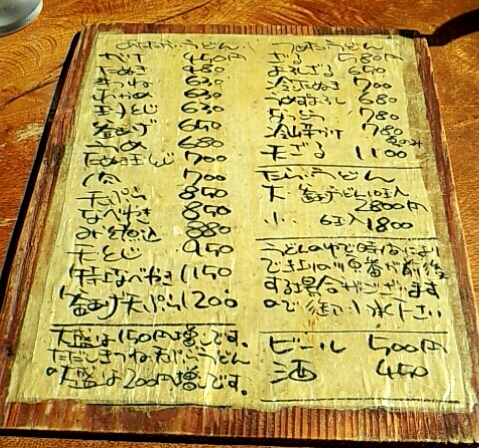 あたたかいうどん
かけ 450円
たぬき 480
きつね 630
わかめ 630
玉子とじ 630
釜あげ 650
うめ 680
たぬき玉とじ 700
肉 700
天ぷら 850
なべやき 850
みそ煮込 880
天とじ 950
特上なべやき 1150
釜あげ天ぷら 1200
大盛は150円増しです。
ただしきつね、天ぷらうどん
大盛は200円増しです。
つめたいうどん
ざる 580円
650
冷たぬき 700
680
780
冷山かけ 780
天ざる 1100
たらいうどん
大 釜あげうどん10玉入
2800円
小 6玉入 1800
うどんのゆで時間により
でき上りの順番が前後
する場合がございます
ので御了承下さい
ビール 500円
酒 450